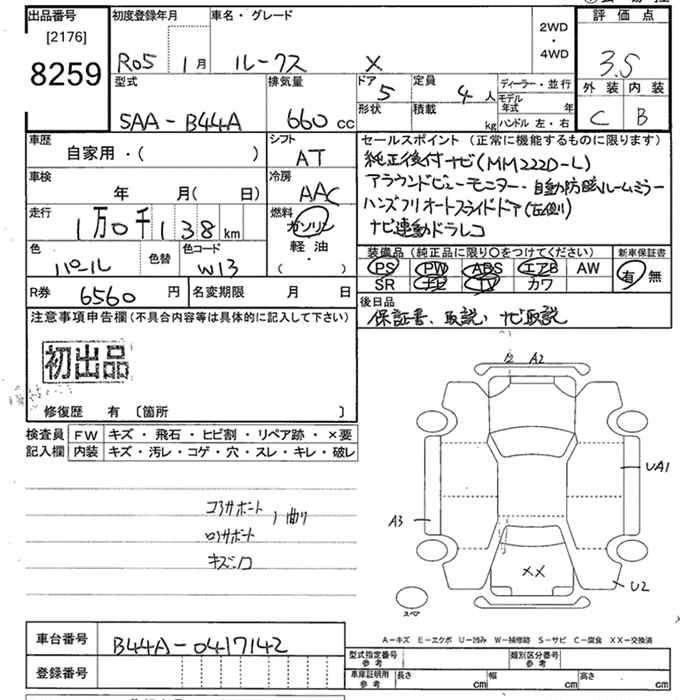 出品番号 初度登録年月 車名・グレード 評価点
[2176]
8259
R05 1月 ルークス X
2WD
・
4WD
3.5
型式 排気量 ドア 定員 ディーラー・並行 外装 内装
5AA-B44A 660cc 5 4人
形状 積載 kg モデル年式 年
ハンドル 左・右 C B
車歴 シフト セールスポイント (正常に機能するものに限ります)
自家用・( ) AT
純正後付ナビ(MM222D-L)
車検 冷房
年 月( 日) AAC
アラウンドビューモニター・自動防眩ルームミラー
走行 燃料
1万0千138km ガソリン
ハンズフリオートスライドドア(左側)
軽油
ナビ連動ドラレコ
( )
色 色替 色コード
パール W13
装備品(純正品に限り〇をつけてください) 新車保証書
PS PW ABS エアB AW 有 無
SR ナビ TV カワ
R券 6560円 名変期限 月 日
後日品
保証書、取説、ナビ取説
注意事項申告欄(不具合内容等は具体的に記入して下さい)
初出品
修復歴 有 〔箇所 〕
検査員 FW キズ・飛石・ヒビ割・リペア跡・×要
記入欄 内装 キズ・汚レ・コゲ・穴・スレ・キレ・破レ
A2
UA1
A3
コアサポート
曲り
ロアサポート
××
U2
スペア
A-キズ E-エクボ U-凹み W-補修跡 S-サビ C-腐食 XX-交換済
車台番号 B44A-0417142
登録番号
型式指定番号 参考 類別区分番号 参考
車庫証明用 参考 長さ cm 幅 cm 高さ cm